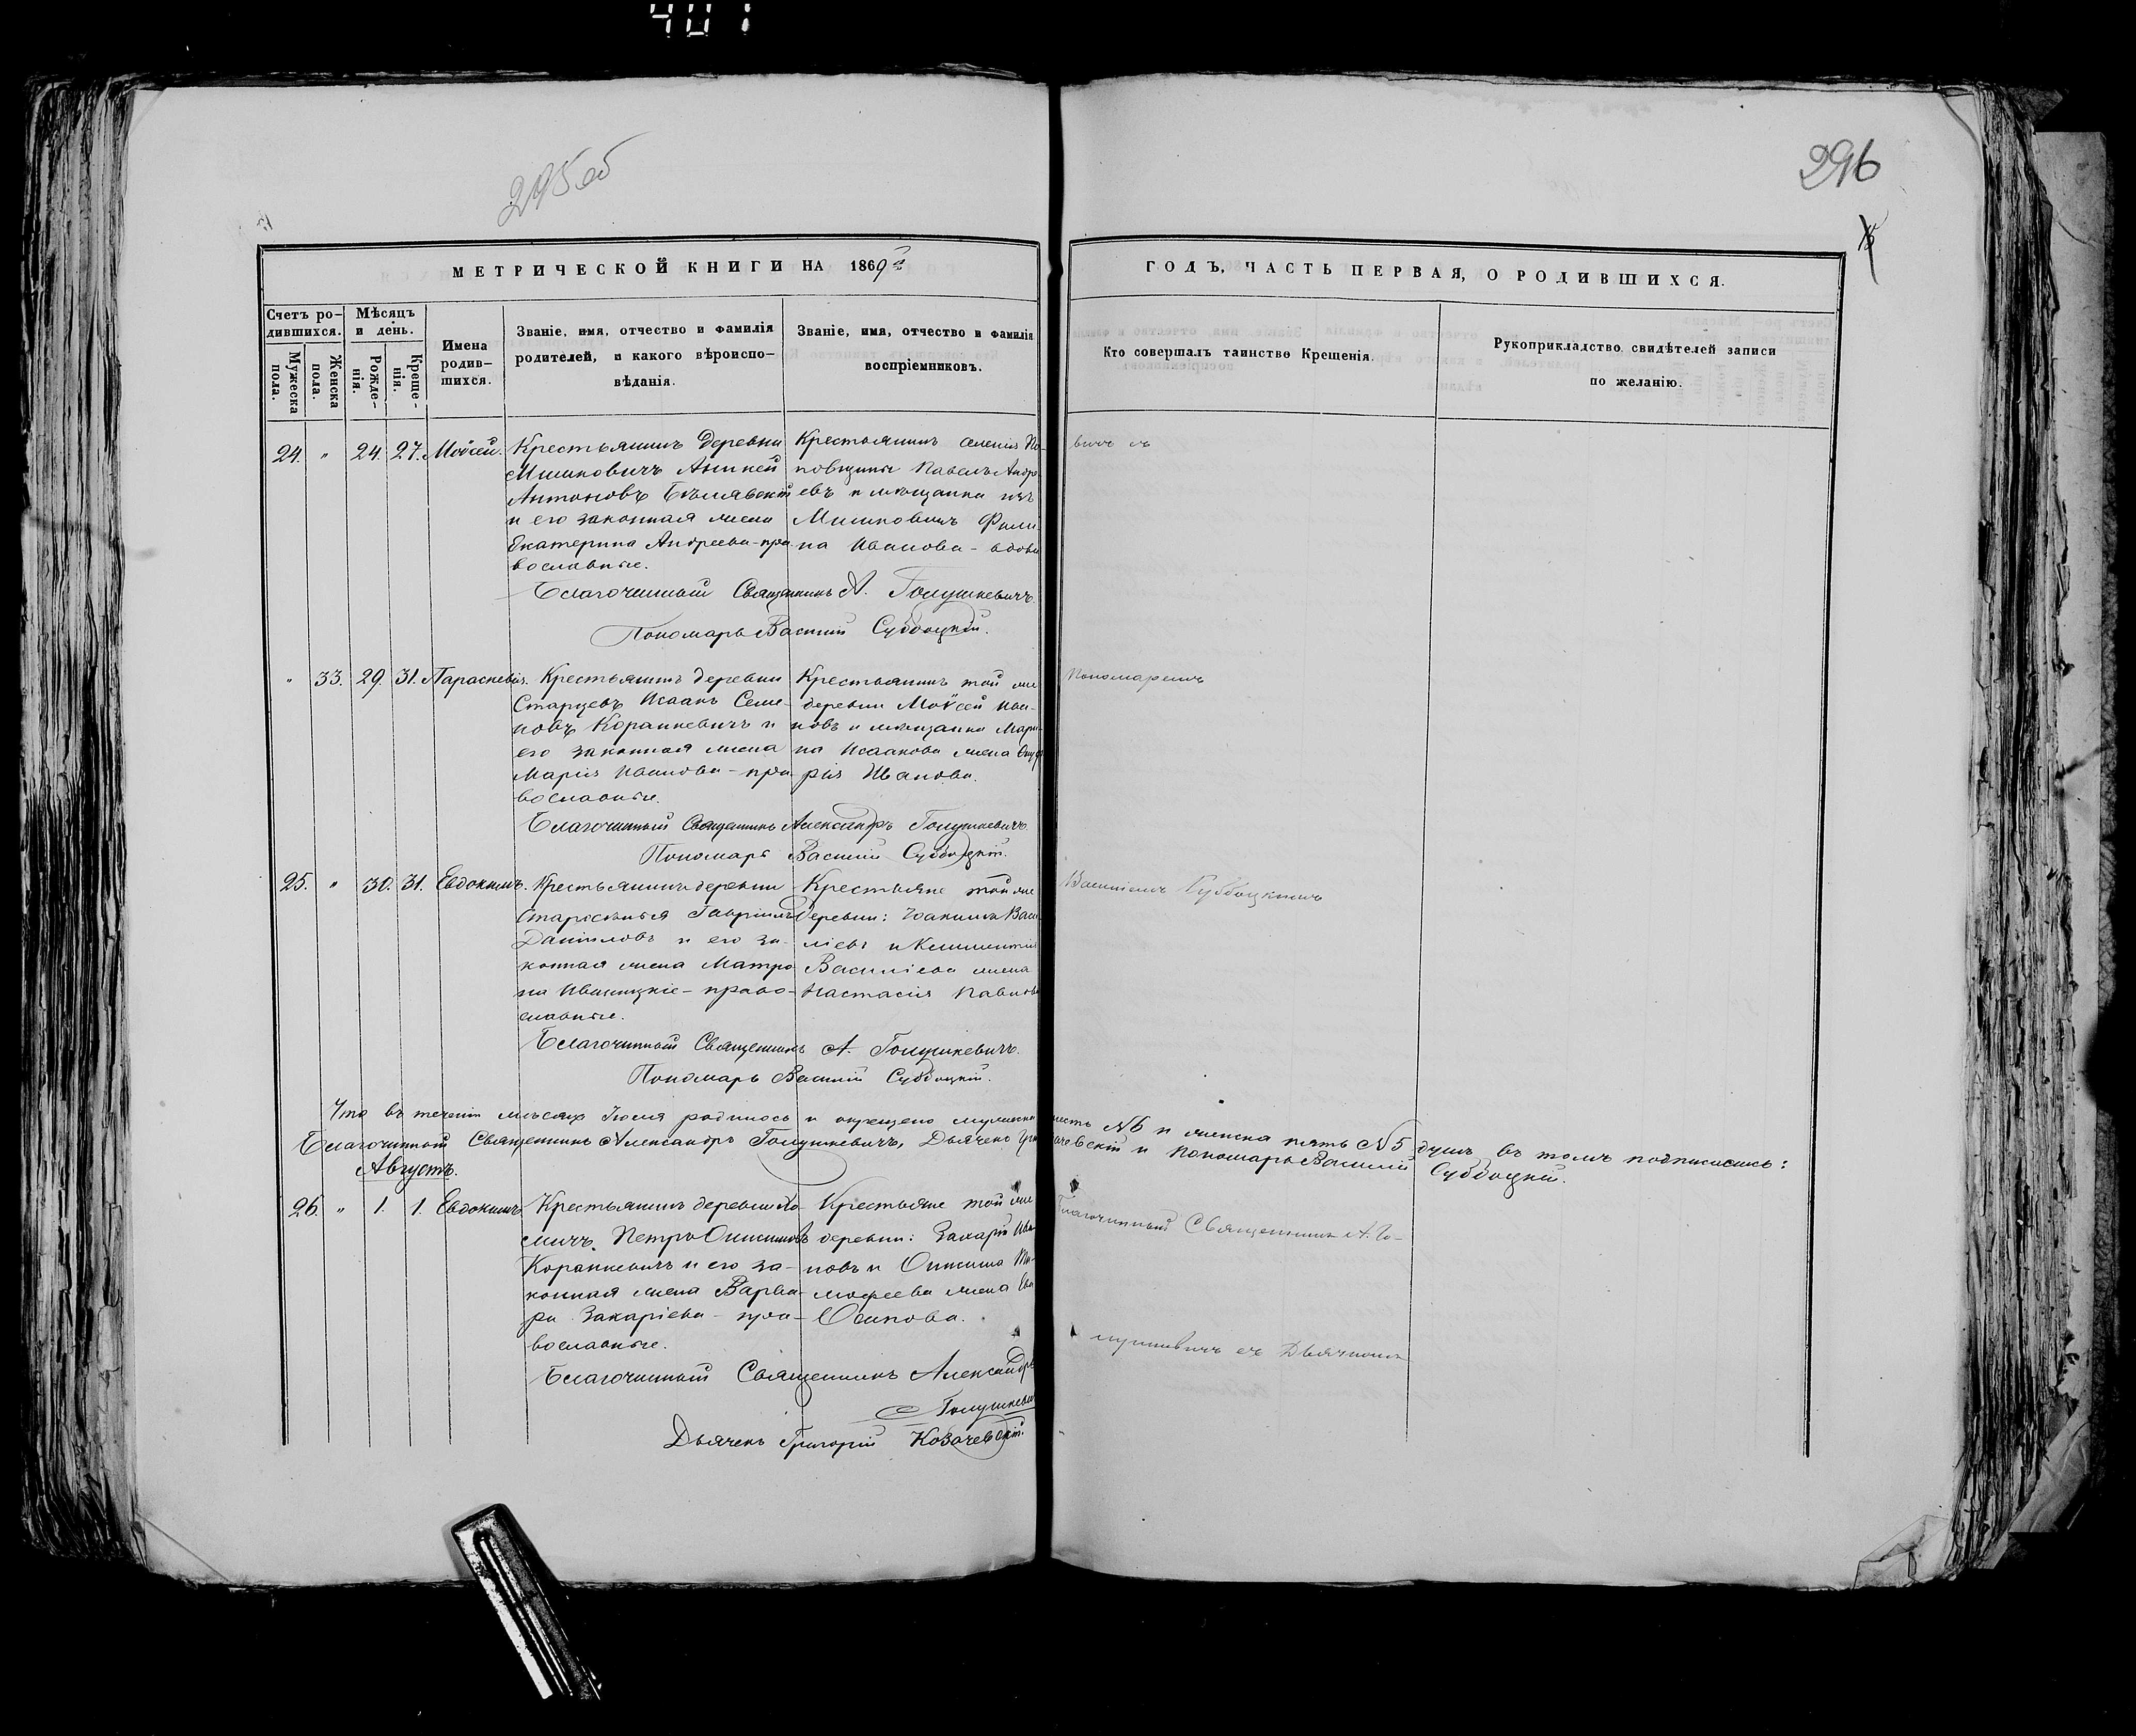 401
295об
296
МЕТРИЧЕСКОЙ КНИГИ НА 1869й
ГОДЪ, ЧАСТЬ ПЕРВАЯ, О РОДИВШИХСЯ.
Счетъ ро-
дившихся.
Мужеска
пола.
Женска
пола.
Мѣсяцъ
и день.
Рожде-
нія.
Креще-
нія.
Имена
родив-
шихся.
Званіе, имя, отчество и фамилія
родителей, и какого вѣроиспо-
вѣданія.
Званіе, имя, отчество и фамилія
воспріемниковъ.
Кто совершалъ таинство Крещенія.
Рукоприкладство свидѣтелей записи
по желанію.
24. " 24. 27. Мойсей.
Крестьянинъ деревни
Мишковичъ Аникей
Антоновъ Бѣлявскій
и его законная жена
Екатерина Андреева - пра-
вославные.
Крестьянинъ селенія По-
повщины Павелъ Андре-
евъ и мѣщанка изъ
Мишковичъ Фили-
па Иванова - вдова
вичъ съ
Благочинный Священникъ А. Голушкевичъ.
Пономарь Василій Субботскій.
" 33. 29. 31. Параскевія.
Крестьянинъ деревни
Старцевъ Исаакъ Семе-
новъ Коранкевичъ и
его законная жена
Марія Иванова - пра-
вославные.
Крестьянинъ той же
деревни Мойсей Ива-
новъ и мѣщанка Мари-
на Исаакова жена
рія Иванова.
Пономаремъ
Благочинный Священникъ Александръ Голушкевичъ.
Пономарь Василій Субботскій.
25. " 30. 31. Евдокимъ.
Крестьянинъ деревни
Гавріилъ
Даниловъ и его за-
конная жена Матро-
на Ивановскіе - право-
славные.
Крестьяне той же
деревни: Іоакимъ Васи-
ліевъ и Климентія
Василіева жена
Настасія Павлова
Василіемъ Субботскимъ
Благочинный Священникъ А. Голушкевичъ.
Пономарь Василій Субботскій.
Что въ теченіи мѣсяца Іюля родилось и окрещено мужеска шесть №6 и женска пять №5 душъ въ томъ подписались:
Благочинный Священникъ Александръ Голушкевичъ, Дьячекъ Козачевскій и Пономарь Василій Субботскій.
Августъ.
26. " 1. 1. Евдокимъ
Крестьянинъ деревни
Петръ Онисимовъ
Коранкевичъ и его за-
конная жена Варва-
ра Захаріева - пра-
вославные.
Крестьяне той же
деревни: Захарій Ива-
новъ и Онисима Ти-
мофеева жена Ева
Осипова.
Благочинный Священникъ А. Го-
лушкевичъ съ Дьячкомъ
Благочинный Священникъ Александръ
Голушкевичъ
Дьячекъ Григорій Козачевскій.